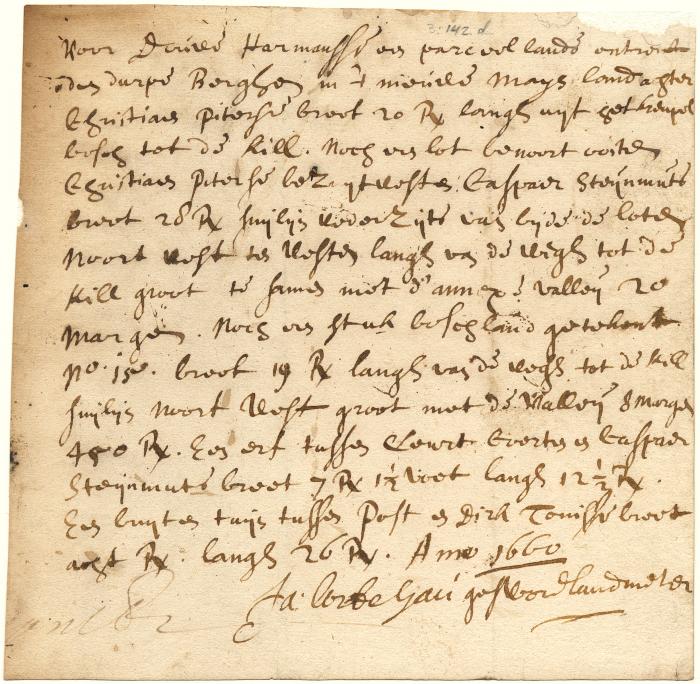 3: 142 d
Voor Douwe Harmansse een parceel lands ontrent
den durpe Berghen in 't nieuwe mayz land achter
Christiaen Piterse breet 20 R langh uyt het kreupel
bosch tot de kill. Noch een lot benoort oosten
Christiaen Piterse bezytwesten Caspaer Steynmets
breet 28 R suylijn wederzijts van beyde de loten
Noort west ten westen langh van de wegh tot de
kill groot te samen met d'annexe valley 20
margen. Noch een stuk boschland getekent
No. 150. breet 19 R langh van de wegh tot de kill
suylijn noort west groot met de Valley 8 margen
450 R. Een erf tussen Court Evertse en Caspaer
Steynmets breet 7 R 1½ voet langh 12½ R.
Een buyten tuyn tussen Post en Dirk Tonisse breet
acht R. langh 26 R. Anno 1660
Ja: Cortelyau geswoor landmeter